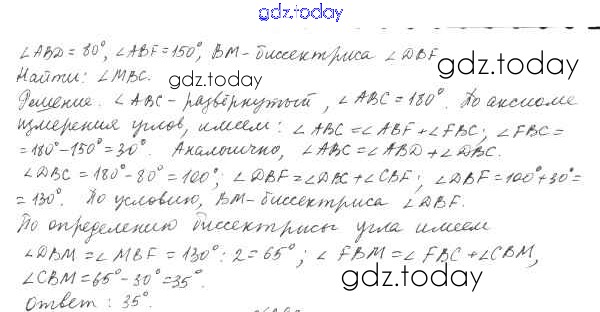 gdz.today
∠ABD = 80°, ∠ABF = 150°, BM - биссектриса ∠DBF
Найти: ∠MBC.
gdz.today
gdz.today
Решение. ∠ABC - развёрнутый, ∠ABC = 180°. По аксиоме
измерения углов, имеем: ∠ABC = ∠ABF + ∠FBC; ∠FBC =
= 180° - 150° = 30°. Аналогично, ∠ABC = ∠ABD + ∠DBC.
∠DBC = 180° - 80° = 100°; ∠DBF = ∠DBC + ∠CBF; ∠DBF = 100° + 30° =
= 130°. По условию, BM - биссектриса ∠DBF.
По определению биссектрисы угла имеем
gdz.today
∠DBM = ∠MBF = 130° : 2 = 65°; ∠FBM = ∠FBC + ∠CBM,
∠CBM = 65° - 30° = 35°.
gdz.today
Ответ: 35°.